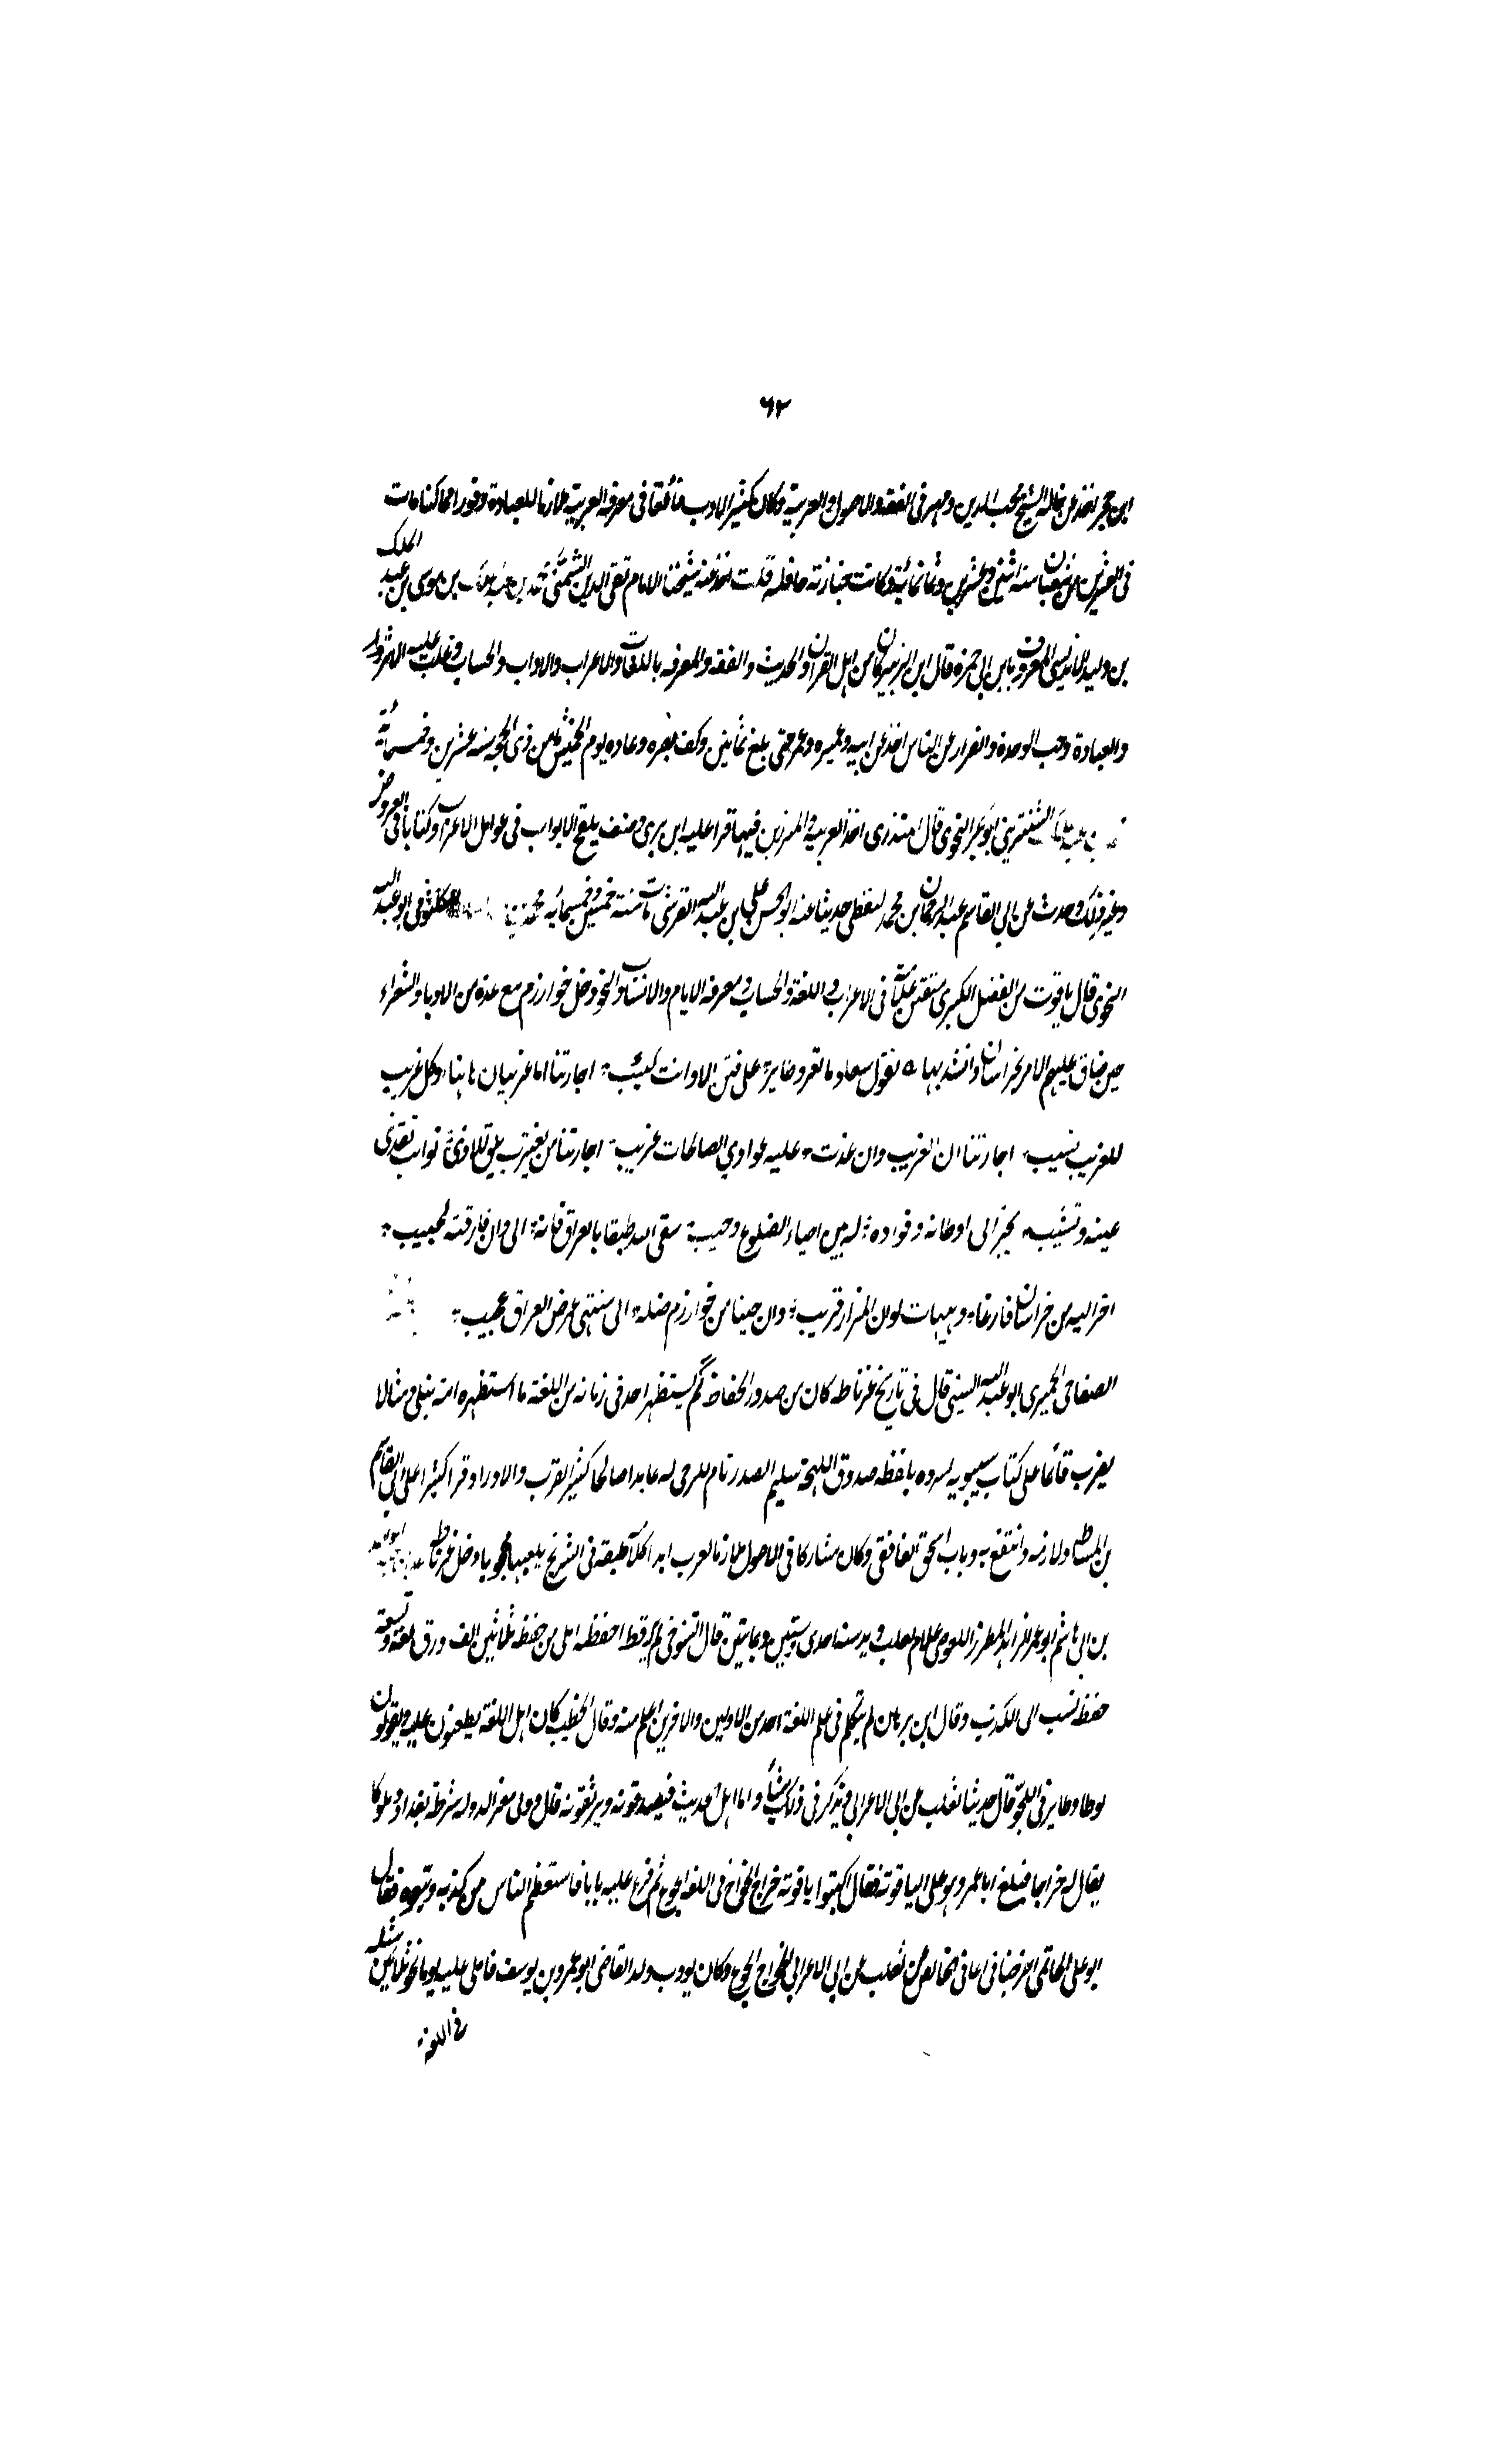 ٦٢
ابن حجر اخذ عن خاله الشيخ محب الدين ومهر فى الفقه والاصول والعربية وكان كثير الادب فائقا فى معرفة العربية ملازما للعبادة وقورا ساكنا مات
فى العشرين من شعبان سنة اثنين وعشرين وثمانمائة وكانت جنازته حافلة قلت اخذ عنه شيخنا الامام تقى الدين الشمنى محمد بن بن موسى بن عبد الملك
بن وليد الاندلسى المعروف بابن ابى جمزه قال ابن الزبير كان من اهل القران والحديث والفقه والمعرفه باللغات والاعراب والاداب والحساب وغلب عليه
والعبادة وحب الوحدة والفرار عن الناس اخذ عن ابيه وغيره وعمر حتى بلغ ثمانين وكف بصره وعاده يوم الخميس ثامن ذى الحجه سنه عشرين وخمسمائة
الشنترينى ابو بكر النحوى قال المنذرى احد العربيه والمبرزين فيها قرا عليه ابن برى وصنف تلقيح الالباب فى عوامل الاعراب وكتابا فى العروض
وغير ذلك وحدث عن ابى القاسم عبد الرحمان بن محمد النفطى حدثنا عنه ابو الحسن على بن عبد الله القرشى مات سنة خمسين وخمسمائه محمد بن ابو عبد الله
النحوى قال ياقوت من الفضل الكبرى متقن علمائنا فى الاعراب واللغة والحساب ومعرفة الايام والانساب والنحو دخل خوارزم مع عدة من الادبا والشعراء
حين ضاق عليهم الامر بخراسان وانشد بها ه تقول سعاد ما تغرد طاير على فنن الا وانت كئيب اجارتنا انا غريبان هاهنا وكل غريب
للغريب نسيب اجارتنا ان الغريب وان غدت عليه غوادى الصالحات غريب اجارتنا من يغترب يلق للاذى نوائب تقذى
عينه وتشيب يحن الى اوطانه وفواده له بين احناء الضلوع وجيب سقى الله طبقا بالعراق فانه الى وان فارقته لحبيب
احن اليه من خراسان نازعا وهيهات لو ان المزار قريب وان حنينا من خوارزم ضلة الى منتهى عرض العراق عجيب
الصفاحى الحميرى ابو عبد الله السبتى قال فى تاريخ غرناطه كان من صدور الحفاظ لم يستظهر احد فى زمانه من اللغة ما استظهره اية تتلى ومثالا
يضرب قائما على كتاب سيبويه يسرده بلفظه صدوق اللهجة سليم الصدر تام للرجوله عابدا صالحا كثير القرب والاوراد قرا كثيرا على ابى القاسم
بن الشاط ولازمه وانتفع به وبابى اسحق الغافقى وكان مشاركا فى الاصول ملازما لعرب ابدا كلا طبقة فى الشطرنج يلعبها محجوبا دخل غرناطه
بن ابى هاشم ابو عمر الزاهد المطرز اللغوى غلام ثعلب ولد سنه احدى وستين ومايتين قال التنوخى لم ار قط احفظ منه املى من حفظه ثلاثين الف ورقة لغة ولسعة
حفظه نسب الى الكذب وقال ابن برهان لم يتكلم فى علم اللغة احد من الاولين والاخرين اعلم منه وقال الخطيب كان اهل اللغة يطعنون عليه ويقولون
لو طار طاير فى الجو قال حدثنا ثعلب عن ابن الاعرابى ويذكر فى ذلك شيئا واما اهل الحديث فيصدقونه ويوثقونه قال وولى معز الدوله شرطة بغداد مملوكا
يقال له خواجا فبلغ ابا عمر وهو على الياقوته فقال اكتبوا ياقوتة خواج الخواج فى اللغه الجوع ثم فرع عليه بابا فاستعظم الناس من كذبه وتتبعوه فقال
ابو على الحاتمى اخرجنا فى امالى الحامض عن ثعلب عن ابن الاعرابى الخواج الجوع وكان يودب ولد القاضى ابو عمرو بن يوسف فاملى عليه يوما نحو ثلاثين مسئله
فى اللغة